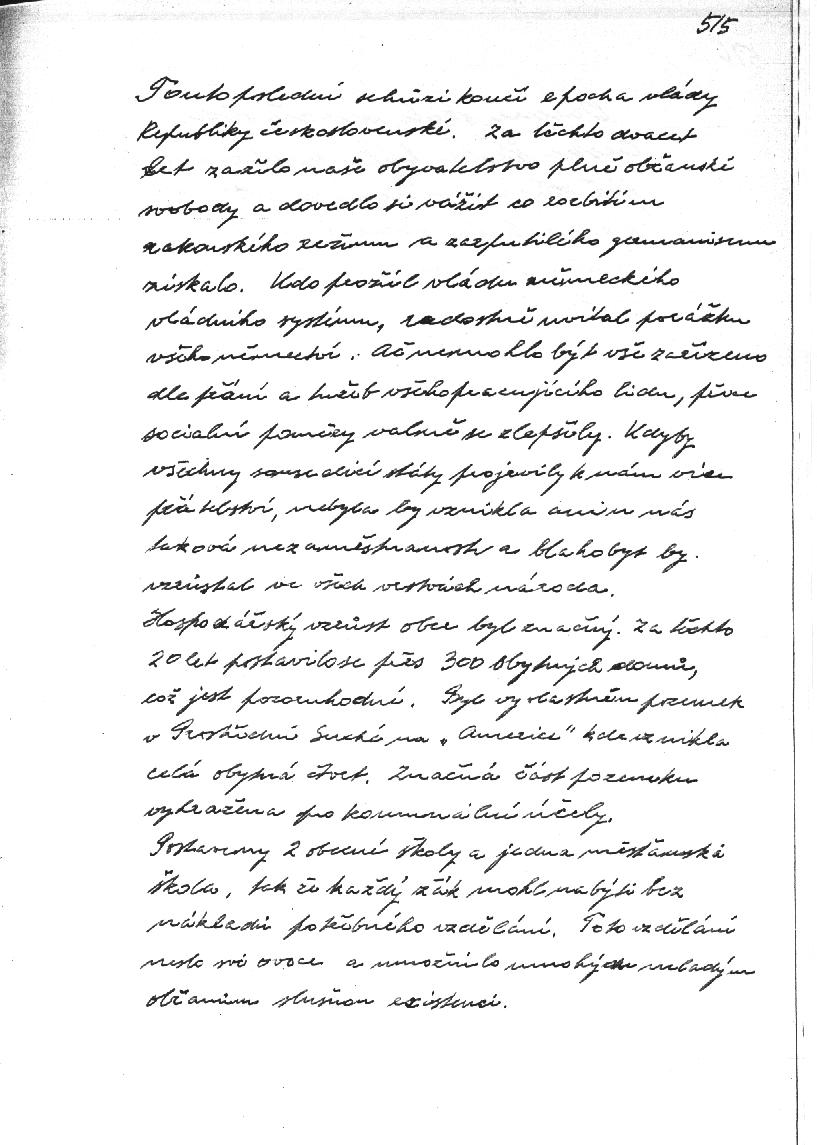 515
Touto poslední schůzí končí epocha vlády
Republiky československé. Za těchto dvacet
let zažilo naše obyvatelstvo plně občanské
svobody a dovedlo si vážit co rozbitím
rakouského režimu a zarputilého germanismu
získalo. Kdo prožil vládu německého
vládního systému, radostně uvítal porážku
všeho němectví. Ač nemohlo být vše zařízeno
dle přání a tužeb všeho pracujícího lidu, přece
socialní poměry valně se zlepšily. Kdyby
všechny sousedící státy projevily k nám více
přátelství, nebyla by vznikla ani u nás
taková nezaměstnanost a blahobyt by
vzrůstal ve všech vrstvách národa.
Hospodářský vzrůst obce byl značný. Za těchto
20 let postavilo se přes 300 obytných domů,
což jest pozoruhodné. Byl vyvlastněn pozemek
v Prostřední Suché na „Americe" kde vznikla
celá obytná čtvrť. Značná část pozemku
vyhražena pro komunální účely.
Postaveny 2 obecné školy a jedna měšťanská
škola, tak že každý žák mohl nabýti bez
nákladů potřebného vzdělání. Toto vzdělání
neslo své ovoce a umožnilo mnohým mladým
občanům slušnou existenci.